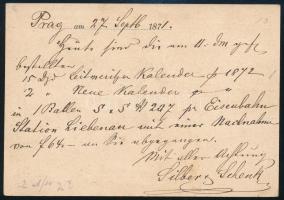 Prag am 27 Septb 1871.
Heute sind die am 11. dm
bestellten
15 Dzd Leitmeritzer Kalender p 1872
2 " Neue Kalender p "
in 1 Ballen S & S # 247 pr Eisenbahn
Station Liebenau mit einer Nachnahme
von f 64.- an Sie abgegangen.
Mit aller Achtung
Silber & Schenk